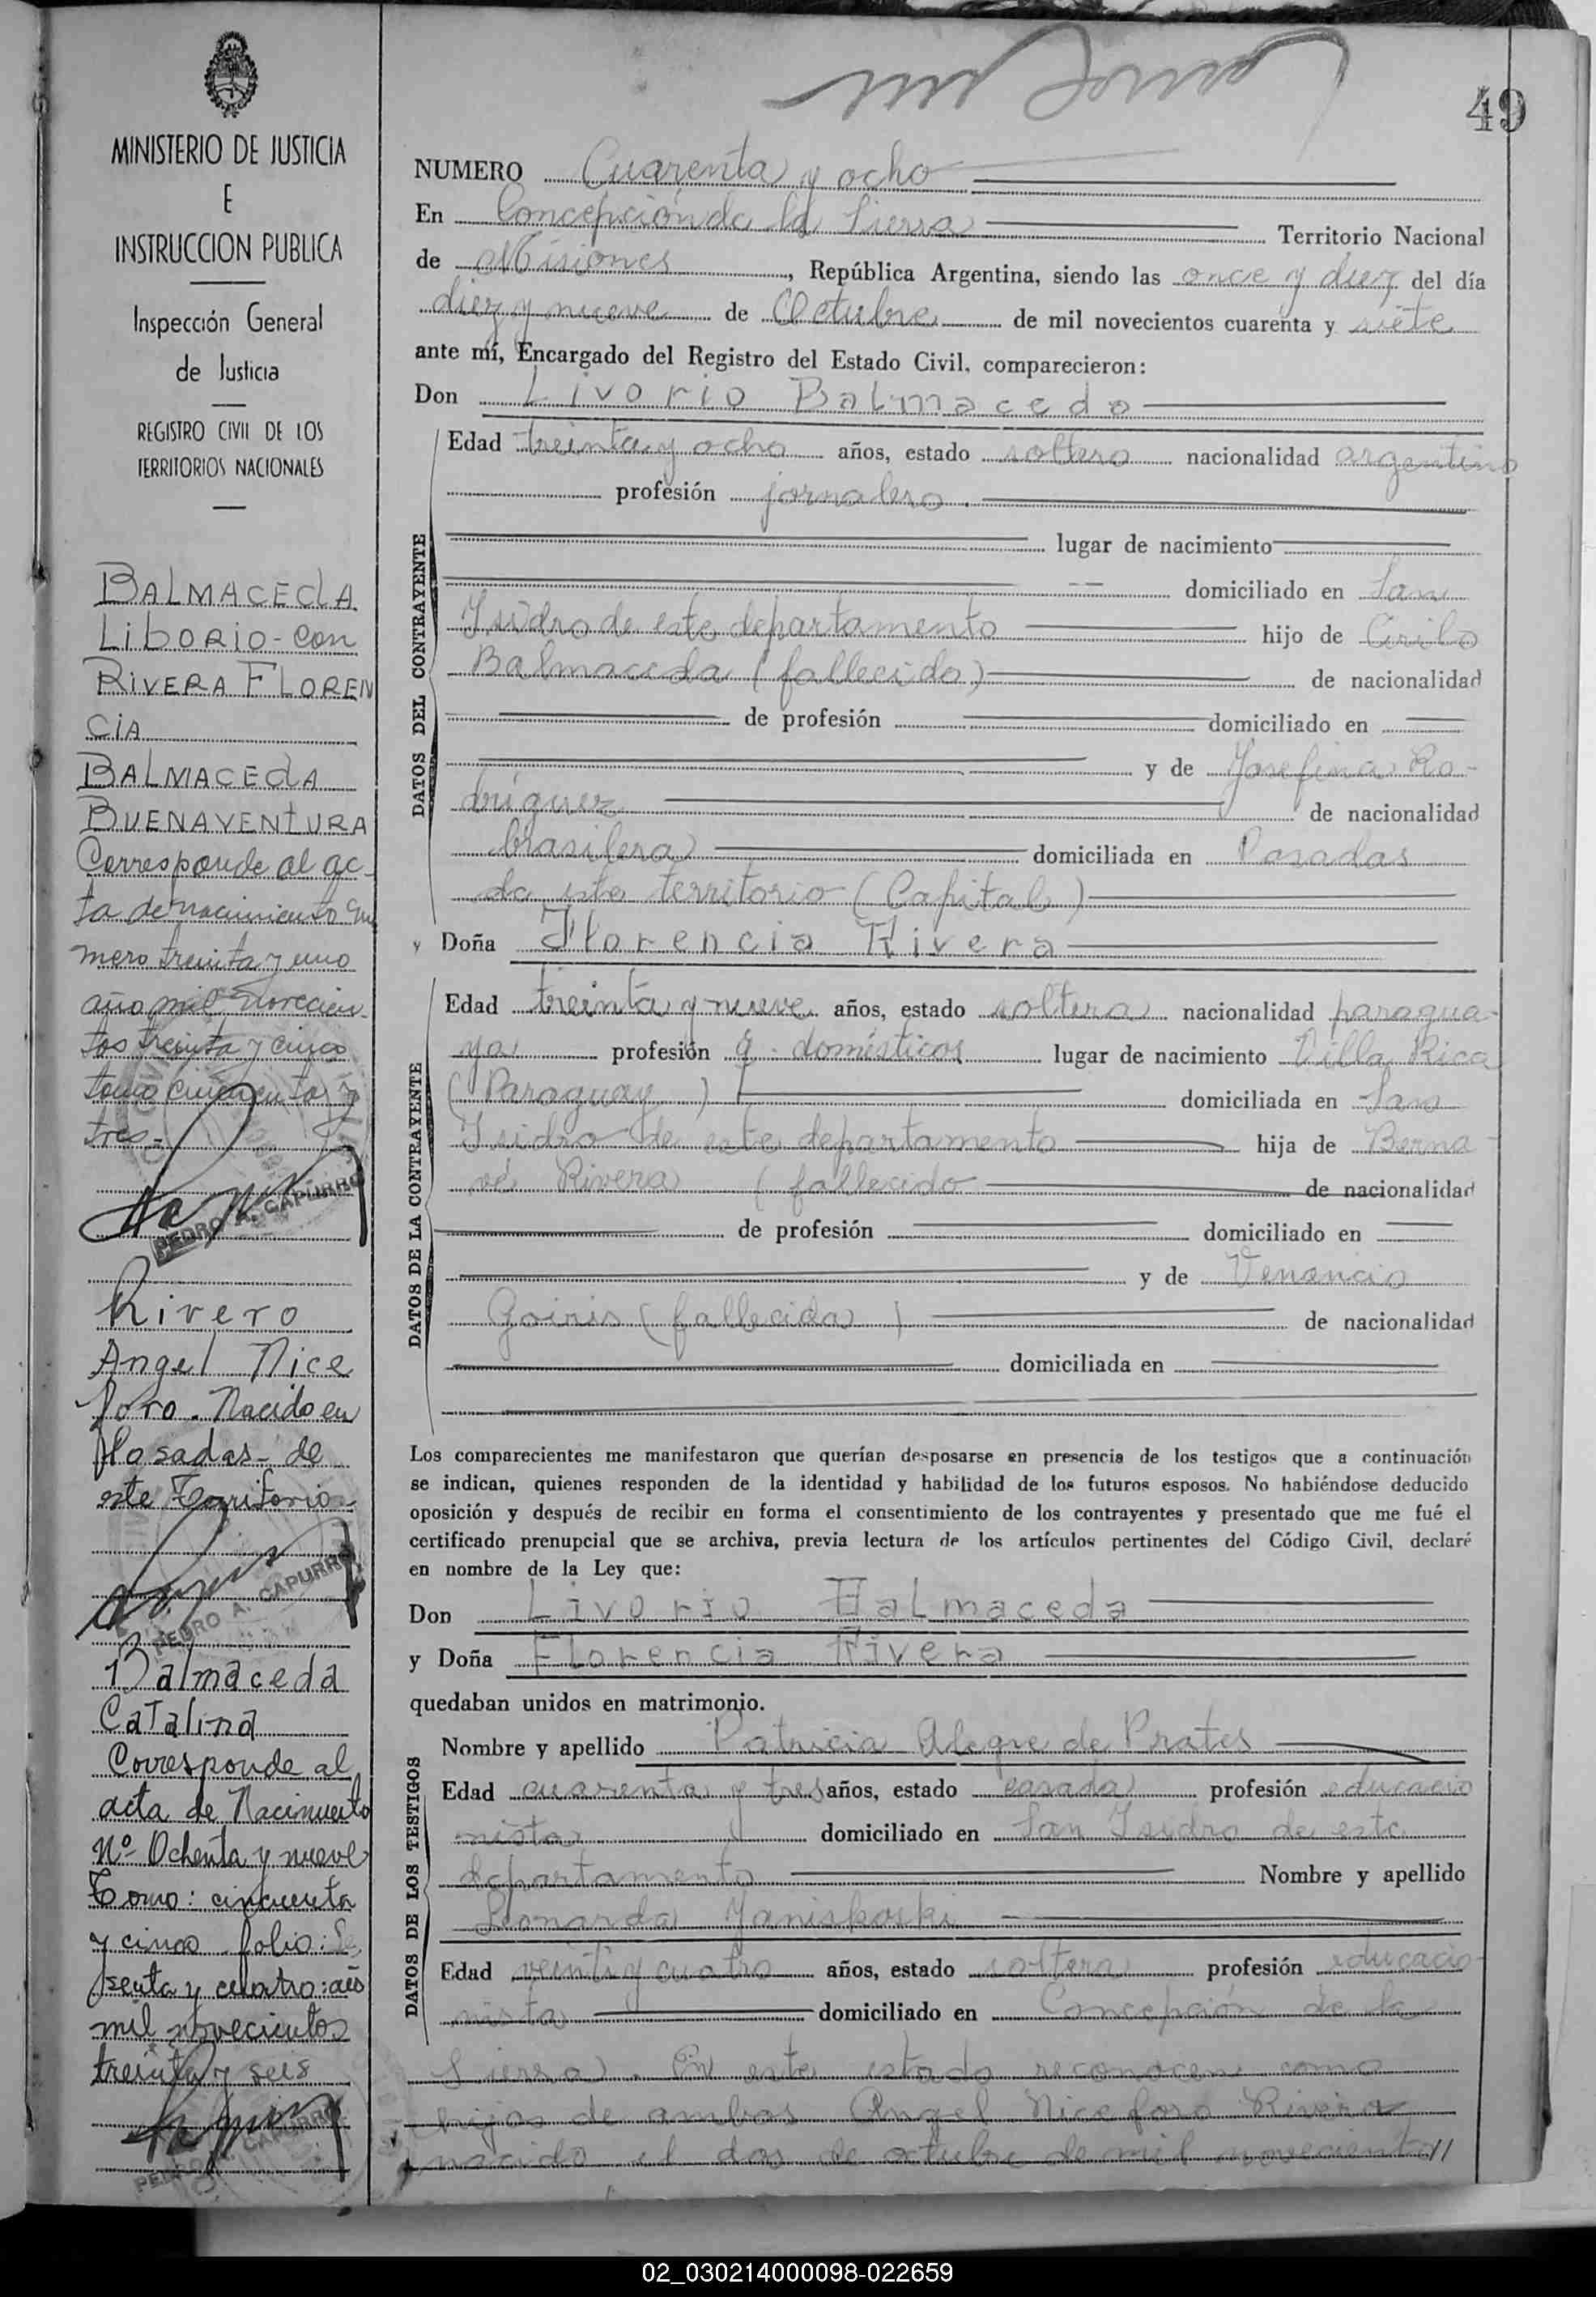 49
MINISTERIO DE JUSTICIA
E
INSTRUCCION PUBLICA
Inspección General
de Justicia
REGISTRO CIVIL DE LOS
TERRITORIOS NACIONALES
BALMACEdA
LibORIO - con
RIVERA FLOREN
CIA
BALMACEdA
BUENAVENtURA
Corresponde al ac-
ta de nacimiento nu
mero treinta y uno
año mil novecien-
tos treinta y cinco
tomo cincuenta y
tres -
PEDRO A. CAPURRO
Rivero
Angel Nice
foro. Nacido en
Posadas - de
este Territorio -
PEDRO A. CAPURRO
Balmaceda
Catalina
Corresponde al
acta de Nacimiento
Nº Ochenta y nueve
Tomo: cincuenta
y cinco folio: Se
senta y cuatro: año
mil novecientos
treinta y seis
PEDRO A. CAPURRO
NUMERO Cuarenta y ocho
En Concepción de la Sierra Territorio Nacional
de Misiones, República Argentina, siendo las once y diez del día
diez y nueve de Octubre de mil novecientos cuarenta y siete
ante mí, Encargado del Registro del Estado Civil, comparecieron:
Don Livorio Balmacedo
DATOS DEL CONTRAYENTE
Edad treinta y ocho años, estado soltero nacionalidad argentino
profesión jornalero.
lugar de nacimiento
domiciliado en San
Isidro de este departamento hijo de Cirilo
Balmaceda (fallecido) de nacionalidad
de profesión domiciliado en
y de Josefina Ro-
dríguez de nacionalidad
brasilera domiciliada en Posadas
de este territorio (Capital)
y Doña Florencia Rivera
DATOS DE LA CONTRAYENTE
Edad treinta y nueve años, estado soltera nacionalidad paragua-
ya profesión q. domésticos lugar de nacimiento Villa Rica
(Paraguay) domiciliada en San
Isidro de este departamento hija de Berna-
vé Rivera (fallecido de nacionalidad
de profesión domiciliado en
y de Venancia
Goiris (fallecida) de nacionalidad
domiciliada en
Los comparecientes me manifestaron que querían desposarse en presencia de los testigos que a continuación
se indican, quienes responden de la identidad y habilidad de los futuros esposos. No habiéndose deducido
oposición y después de recibir en forma el consentimiento de los contrayentes y presentado que me fué el
certificado prenupcial que se archiva, previa lectura de los artículos pertinentes del Código Civil, declaré
en nombre de la Ley que:
Don Livorio Balmaceda
y Doña Florencia Rivera
quedaban unidos en matrimonio.
DATOS DE LOS TESTIGOS
Nombre y apellido Patricia Alegre de Prates
Edad cuarenta y tres años, estado casada profesión educacio
nista domiciliado en San Isidro de este
departamento Nombre y apellido
Leonarda Yaniskoski
Edad veinti y cuatro años, estado soltera profesión educacio-
nista domiciliado en Concepción de la
Sierra. En este estado reconocen como
hijos de ambos Angel Niceforo Rivera
nacido el dos de octubre de mil novecientos//
02_030214000098-022659